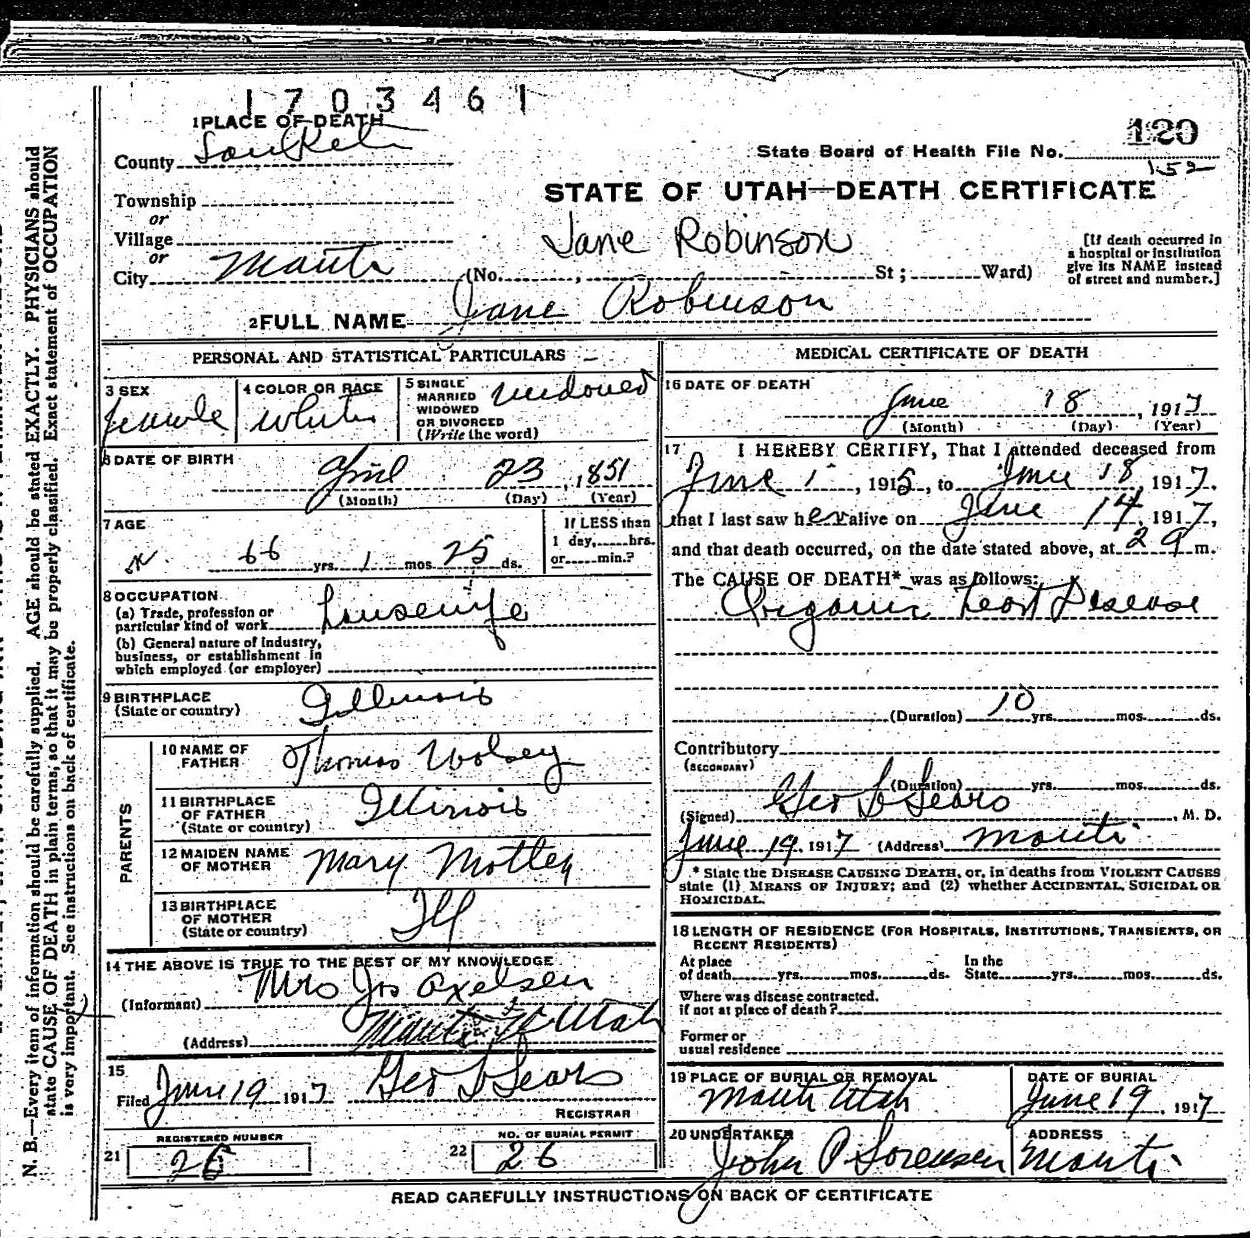 1 7 0 3 4 6 1
1 PLACE OF DEATH
County
120
State Board of Health File No.
152
STATE OF UTAH—DEATH CERTIFICATE
Township
or
Village
or
City Manti
Jane Robinson
(No. , St ; Ward)
[If death occurred in
a hospital or institution
give its NAME instead
of street and number.]
2 FULL NAME Jane Robinson
PERSONAL AND STATISTICAL PARTICULARS
3 SEX
female
4 COLOR OR RACE
White
5 SINGLE
MARRIED
WIDOWED
OR DIVORCED
(Write the word)
widowed
6 DATE OF BIRTH
April 23, 1851
(Month) (Day) (Year)
7 AGE
66 yrs. 1 mos. 25 ds.
If LESS than
1 day, hrs.
or min.?
8 OCCUPATION
(a) Trade, profession or
particular kind of work housewife
(b) General nature of industry,
business, or establishment in
which employed (or employer)
9 BIRTHPLACE
(State or country)
Illinois
PARENTS
10 NAME OF
FATHER
Thomas Wolsey
11 BIRTHPLACE
OF FATHER
(State or country)
Illinois
12 MAIDEN NAME
OF MOTHER
Mary Motley
13 BIRTHPLACE
OF MOTHER
(State or country)
Ill
14 THE ABOVE IS TRUE TO THE BEST OF MY KNOWLEDGE
(Informant) Mrs Jos Axelsen
(Address) Manti Utah
15
Filed June 19 1917 Geo L Sears
REGISTRAR
REGISTERED NUMBER
21 26
NO. OF BURIAL PERMIT
22 26
MEDICAL CERTIFICATE OF DEATH
16 DATE OF DEATH
June 18, 1917
(Month) (Day) (Year)
17 I HEREBY CERTIFY, That I attended deceased from
June 1, 1915, to June 18, 1917,
that I last saw her alive on June 14, 1917,
and that death occurred, on the date stated above, at 2 a m.
The CAUSE OF DEATH* was as follows:
Organic heart Disease
(Duration) 10 yrs. mos. ds.
Contributory
(SECONDARY)
(Duration) yrs. mos. ds.
(Signed) Geo L Sears, M. D.
June 19, 1917 (Address) Manti
* State the DISEASE CAUSING DEATH, or, in deaths from VIOLENT CAUSES
state (1) MEANS OF INJURY; and (2) whether ACCIDENTAL, SUICIDAL OR
HOMICIDAL.
18 LENGTH OF RESIDENCE (FOR HOSPITALS, INSTITUTIONS, TRANSIENTS, OR
RECENT RESIDENTS)
At place
of death yrs. mos. ds.
In the
State yrs. mos. ds.
Where was disease contracted,
if not at place of death?
Former or
usual residence
19 PLACE OF BURIAL OR REMOVAL
Manti Utah
DATE OF BURIAL
June 19, 1917
20 UNDERTAKER
John P Sorensen
ADDRESS
Manti
READ CAREFULLY INSTRUCTIONS ON BACK OF CERTIFICATE
N. B.—Every item of information should be carefully supplied. AGE should be stated EXACTLY. PHYSICIANS should
state CAUSE OF DEATH in plain terms, so that it may be properly classified. Exact statement of OCCUPATION
is very important. See instructions on back of certificate.